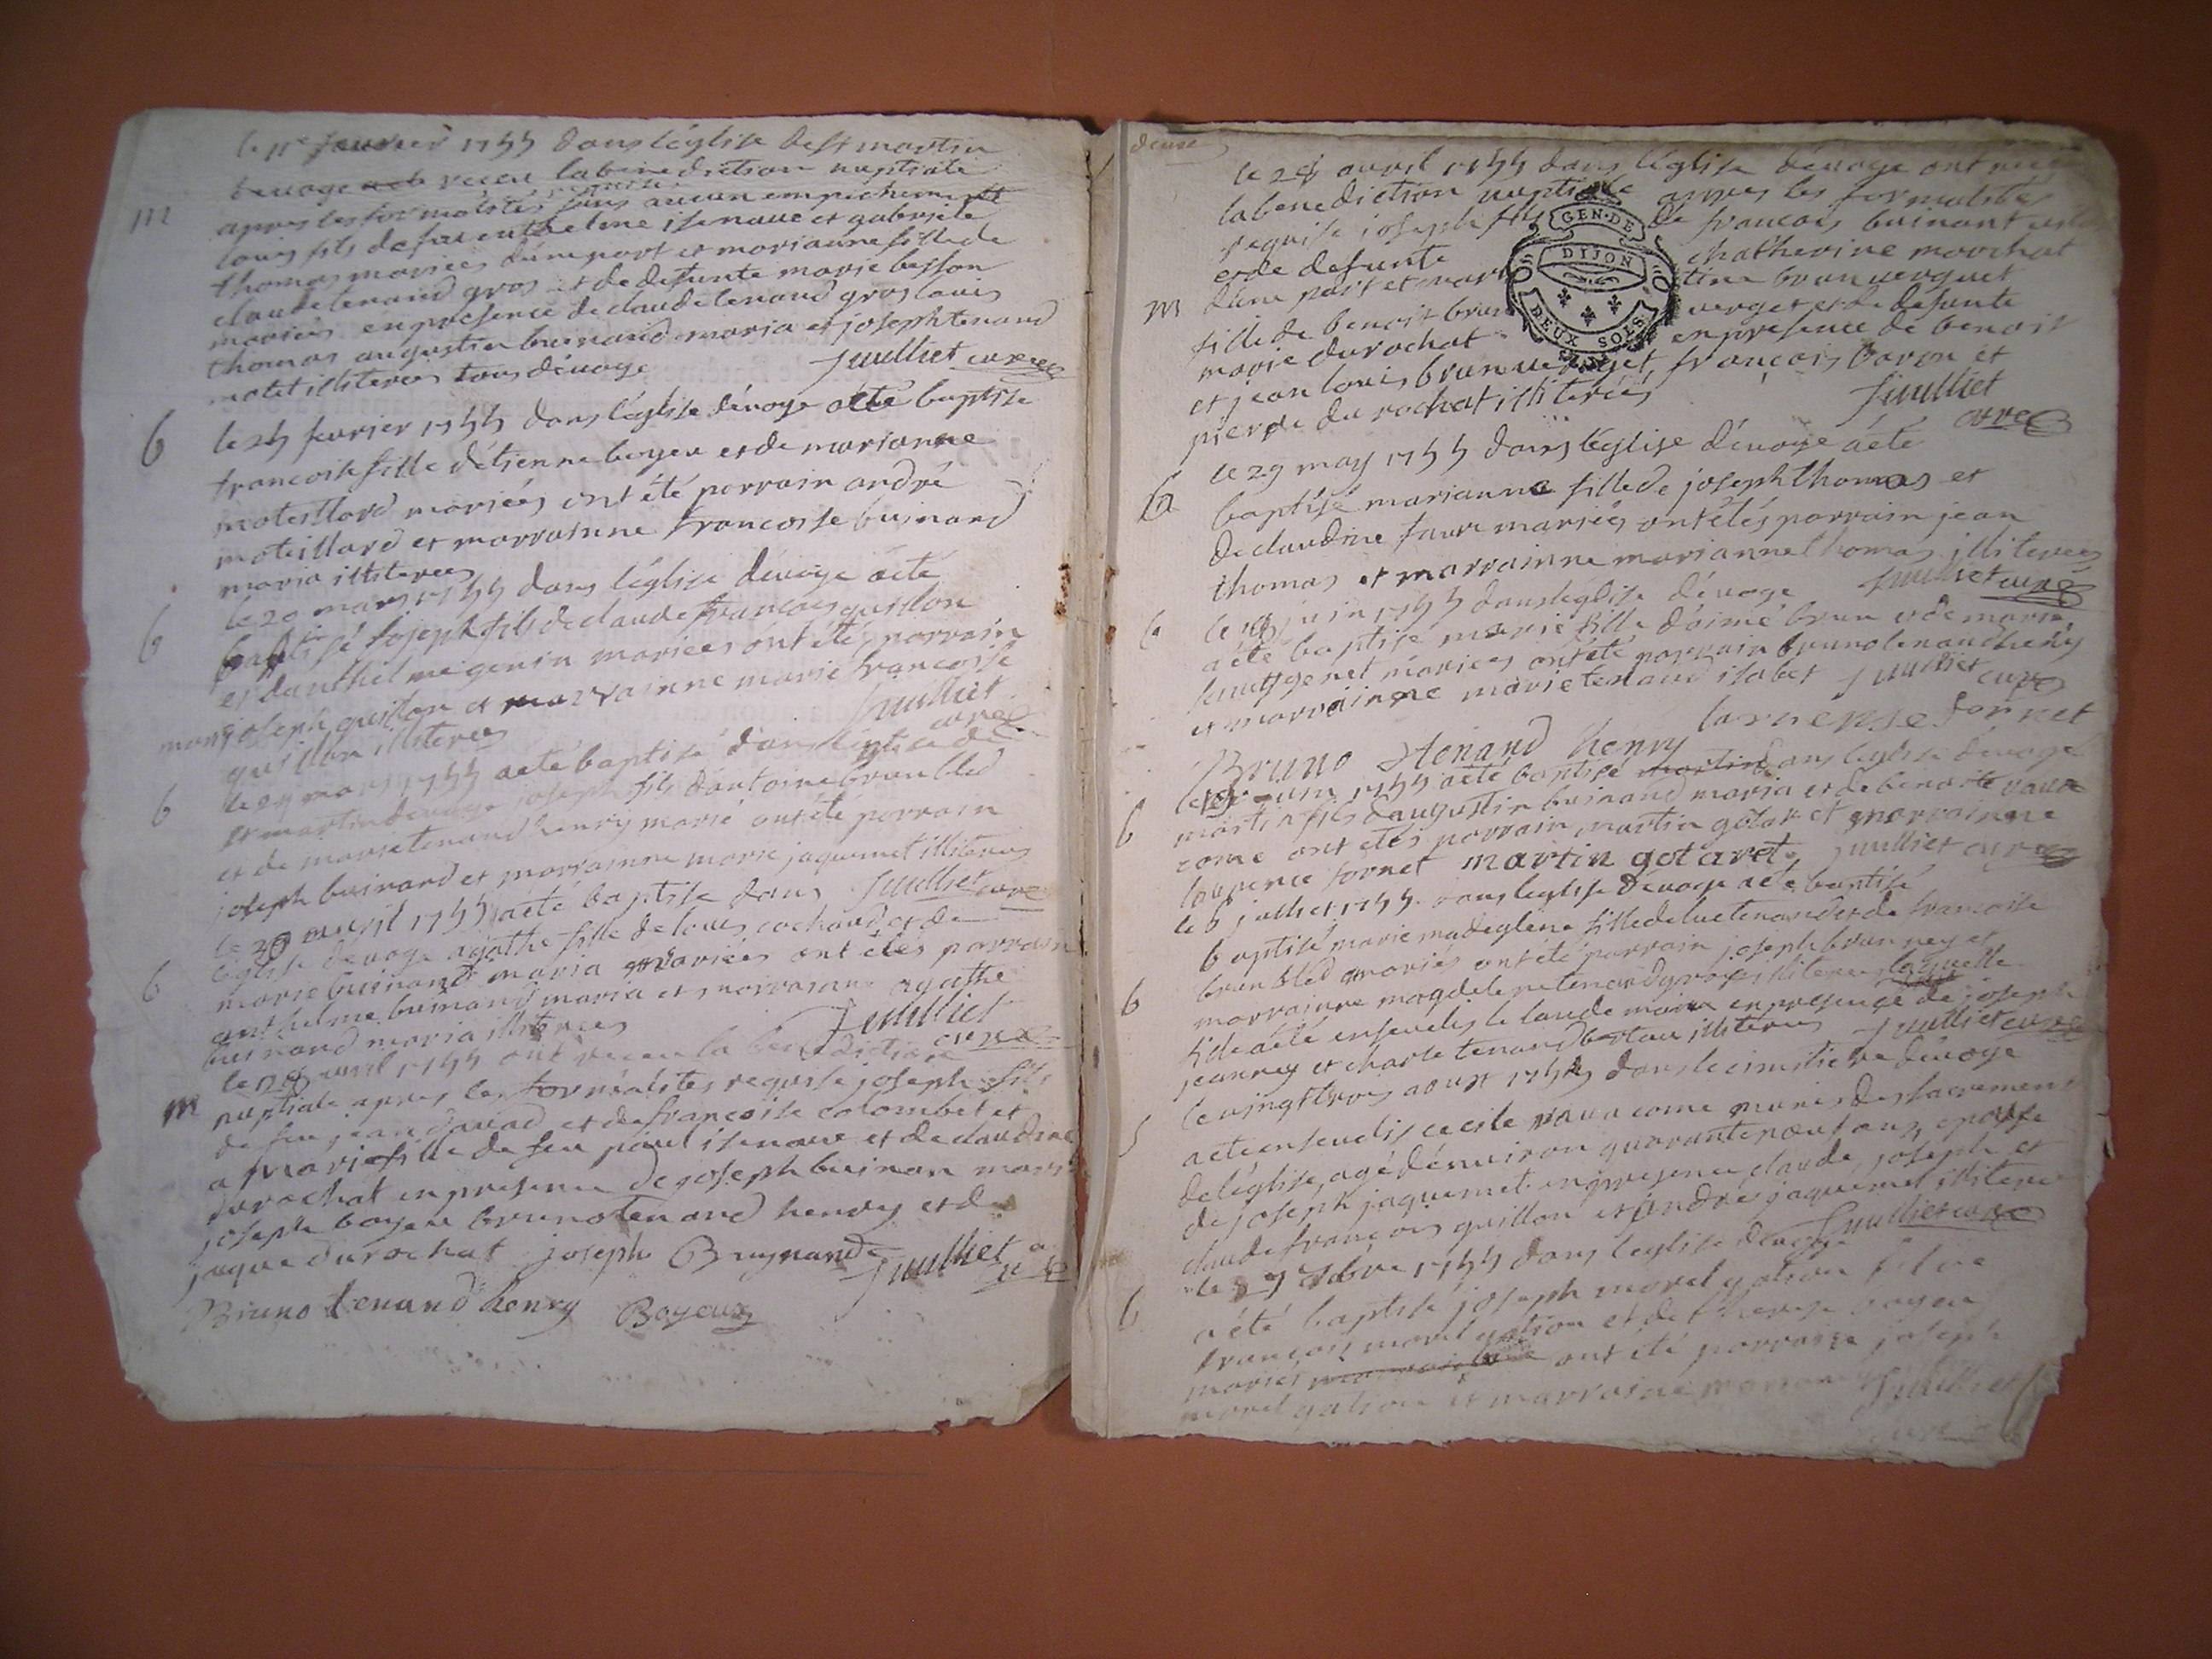 le 11e feuvrier 1755 dans l'église de st martin
devoge receu la benediction nuptiale
m
apres les formalités requise sans aucun empechement
louis fils de feu enthelme isenave et gabriele
thomas mariées d'une part et marianne fille de
claude tenand gros et de defunte marie besson
mariés en presence de claude tenand gros louis
thomas augustin buinand maria et joseph tenand
motet illiterees tous dévoge juilliet curee
b
le 25 fevrier 1755 dans l'église dévoge a été baptisé
francoise fille d'étienne boyeu et de marianne
moteillard mariées ont été parrain andré
moteillard et marrainne francoise buinand
maria illiterees
b
le 20 mars 1755 dans l'église dévoge a été
baptisé joseph fils de claude francois guillon
et danthelme genin mariees ont été parrain
mary joseph guillon et marrainne marie francoise
guillon illiterees juilliet curé
b
mars 1755 a été baptisé dans l'église de
st martin devoge joseph fils dantoine brun bled
et de marie tenand henry marié ont été parrain
joseph buinand et marrainne marie jaquemet illiterees
le 20 avril 1755 a été baptisé dans juilliet curé
b
l'église dévoge agathe fille de louis cochand et de
marie buinand maria mariées ont étés parrain
anthelme buinand maria et marrainne agathe
buinand maria illiterees juilliet curee
le 28 avril 1755 ont receu la benediction
m
nuptiale apres les formalites requise joseph fils
de feu jean et de francoise colombet et
a marie fille de feu paul isenave et de claudine
durochat en presence de joseph buinan maria
joseph boyeu bruno tenand henry et de
jaque durochat joseph Bruynand juilliet
Bruno tenand henry Boyeux
deuse
le 28 avril 1755 dans l'église dévoge ont receu
la benediction nuptiale apres les formalités
requise joseph fils de francois buinant
et de defunte chatherine marchat
m
d'une part et mar tine brun verguet
fille de benoit brun verget et de defunte
marie durochat en presence de benoit
et jean louis brun verget, françois baron et
pierre du rochat illiterées juilliet curé
GEN. DE
DIJON
DEUX SOLS
b
le 29 may 1755 dans l'église dévoge a été
baptisé marianne fille de joseph thomas et
de claudine favre mariés ont étés parrain jean
thomas et marrainne marianne thomas illiterees
b
le juin 1755 dans l'église dévoge juilliet curé
a été baptisé marie fille d'aimé brun et de marie
genet mariees ont été parrain bruno tenand henry
et marrainne marie tenand isabet juilliet curé
Bruno tenand henry laurense fornet
le juin 1755 a été baptisé dans l'église dévoge
b
martin fils daugustin buinand maria et de benoite rava
come ont étés parrain martin gotart et marrainne
laurence fornet martin gotaret juilliet curé
le 6 julliet 1755 dans l'église dévoge a été baptisé
baptisé marie madeglene fille de luc tenand et de francoise
b
brun bled mariés ont été parrain joseph brun ney et
marrainne magdelene tenand gros illiterees laquelle
fide a été enseuelis le landemain en presence de joseph
jeanney et charle tenand bastau illiteres juilliet curé
le vingt trois aoust 1755 dans le cimitiere dévoge
s
a été enseuelis cecile rava come munis des sacremens
de l'église, agé d'environ quarante neuf ans, epouse
de joseph jaquemet en presence claude, joseph et
claude françois guillon et andré jaquemet illiteres
le 7bre 1755 dans l'église dévoge juilliet curé
b
a été baptisé joseph morel galion fils de
françois morel galion et de therese boyeu
mariés ont été parrain joseph
morel galion et marraine juilliet
curé